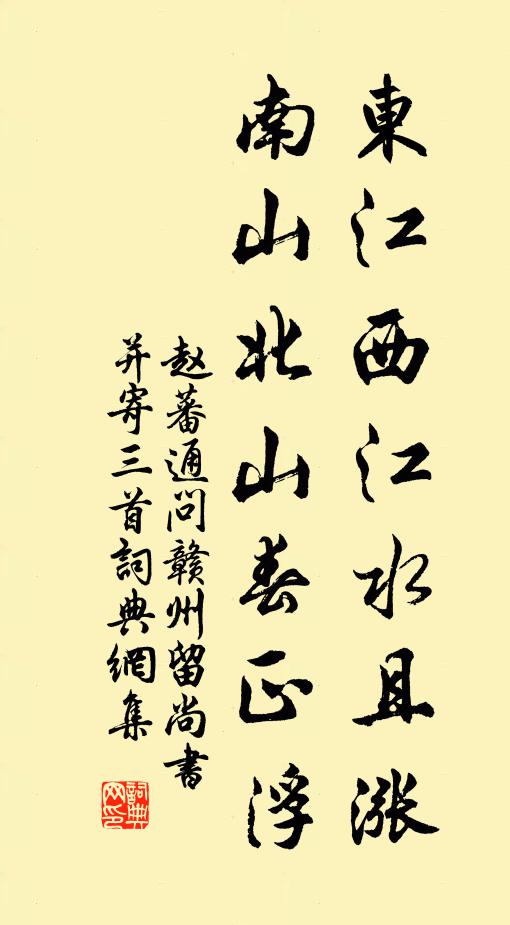 東江西江水且漲
南山北山春正浮
赵蕃通问贛州留尚書
并寄三首詞典網集
詞典网印